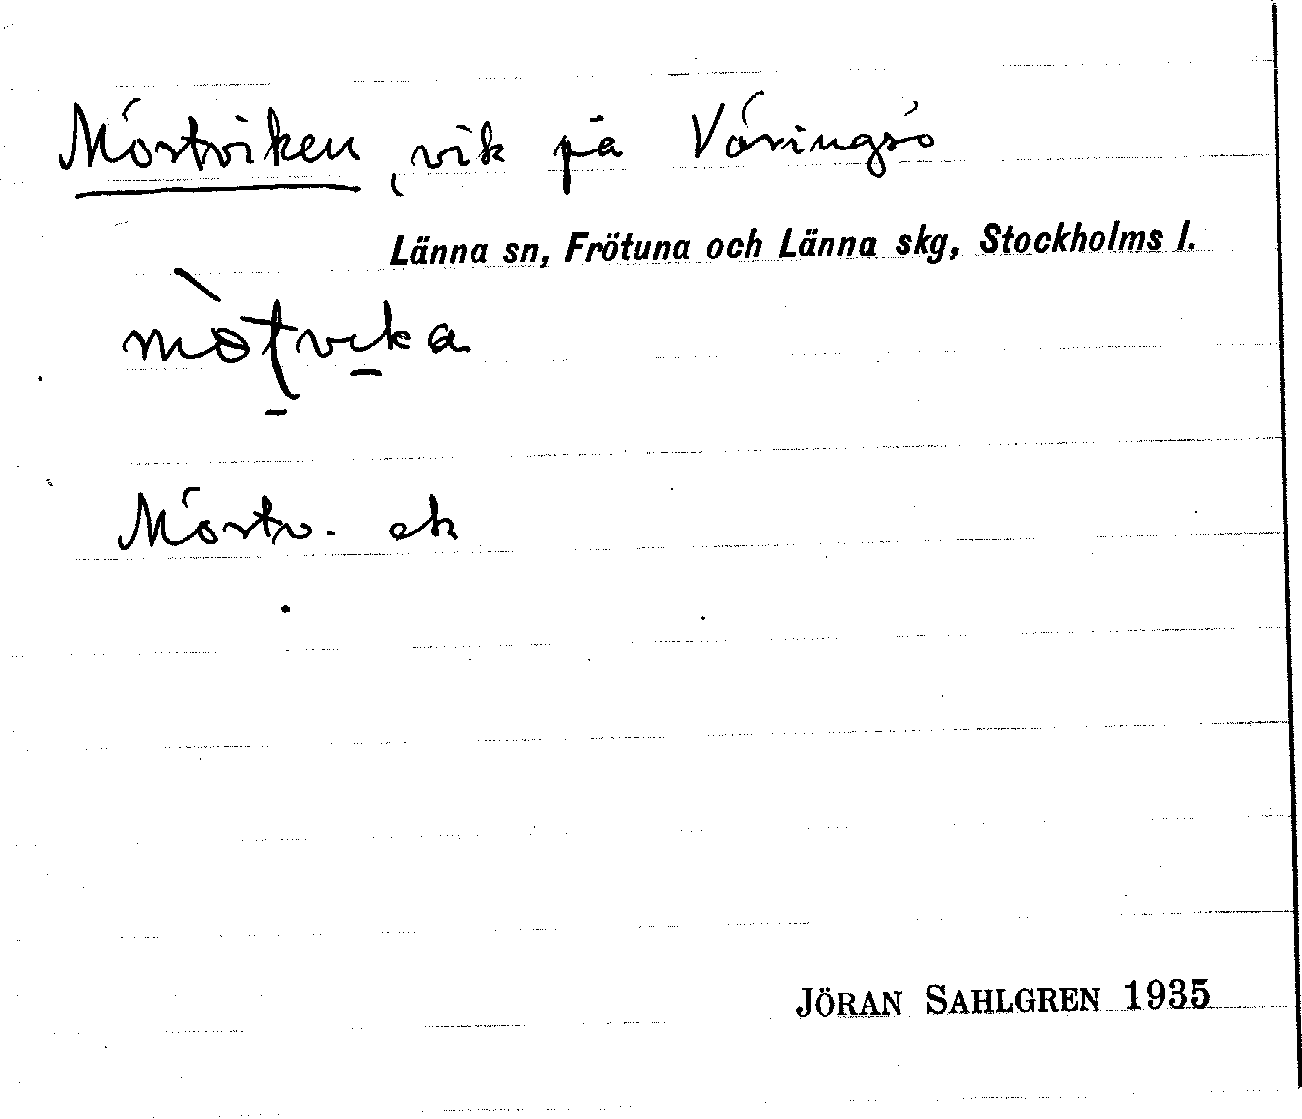 Mörtviken, vik på Väringsö
Länna sn, Frötuna och Länna skg, Stockholms l.
Mörtv. ek
JÖRAN SAHLGREN 1935